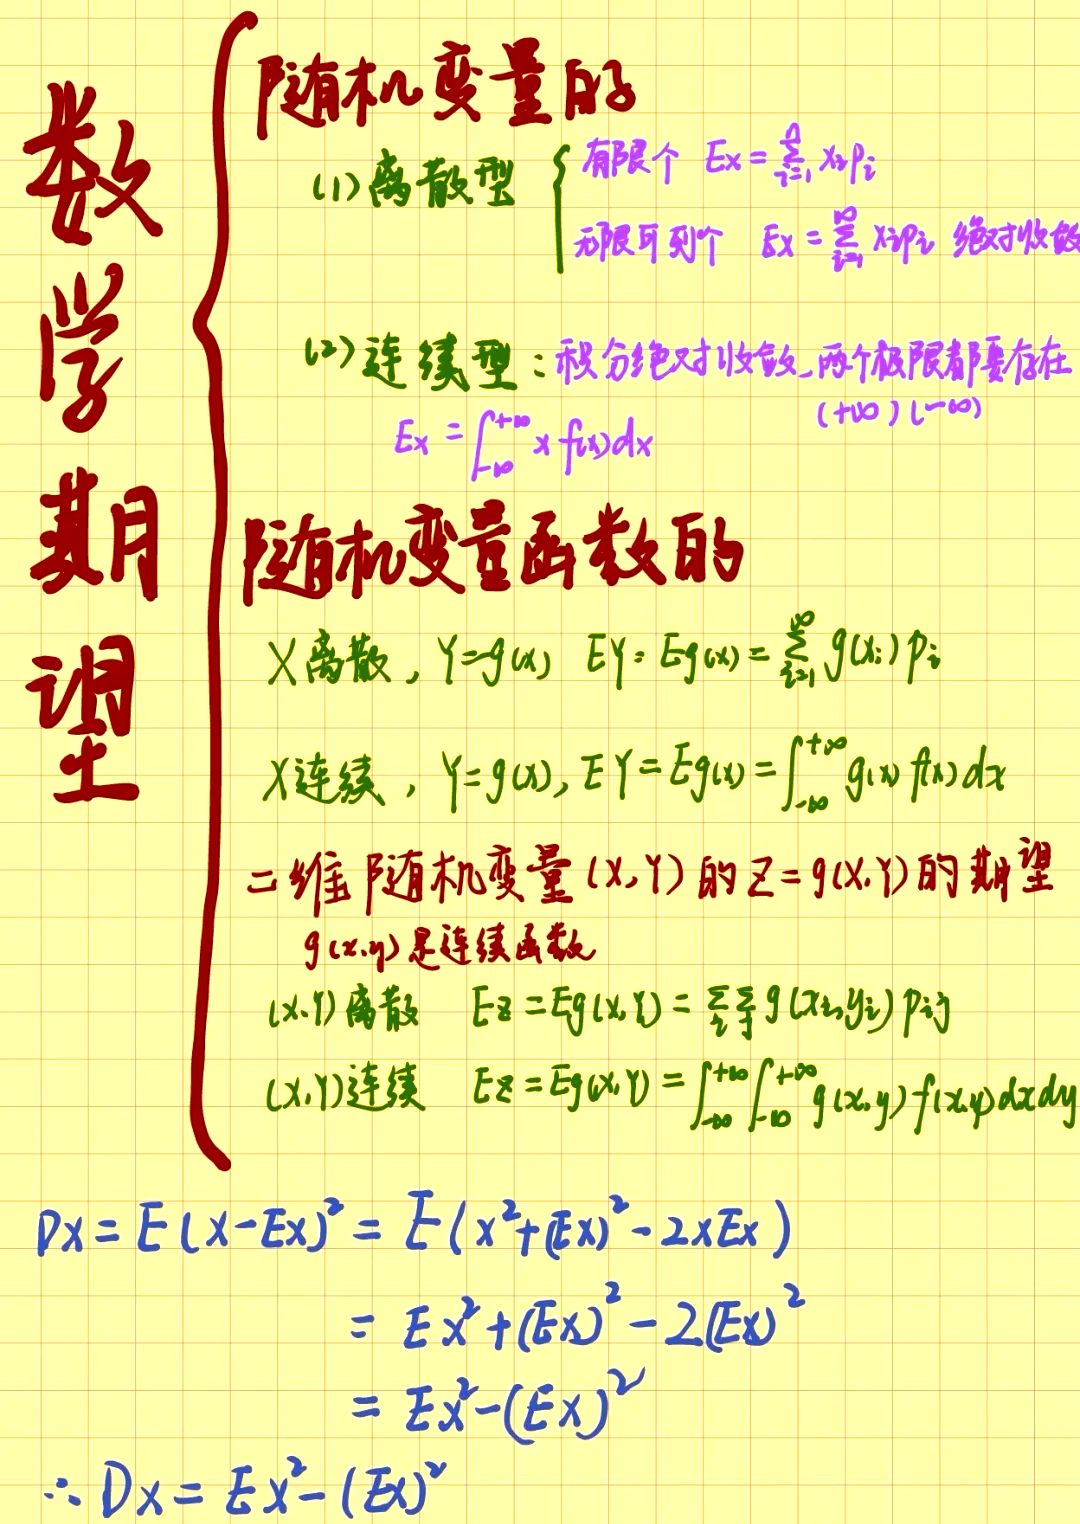 数学期望
随机变量的
(1)离散型
有限个 Ex=∑_{i=1}^{n} xᵢpᵢ
无限可列个 Ex=∑_{i=1}^{∞} xᵢpᵢ 绝对收敛
(2)连续型:积分绝对收敛,两个极限都要存在
(+∞)(-∞)
Ex=∫_{-∞}^{+∞} x f(x)dx
随机变量函数的
X离散,Y=g(x) EY=Eg(x)=∑_{i=1}^{∞} g(xᵢ)pᵢ
X连续,Y=g(x),EY=Eg(x)=∫_{-∞}^{+∞} g(x)f(x)dx
二维随机变量(X,Y)的Z=g(X,Y)的期望
g(x,y)是连续函数
(X,Y)离散 EZ=Eg(X,Y)=∑_{i}∑_{j} g(xᵢ,yᵢ)pᵢⱼ
(X,Y)连续 EZ=Eg(X,Y)=∫_{-∞}^{+∞}∫_{-∞}^{+∞} g(x,y)f(x,y)dxdy
Dx=E(x-Ex)²=E(x²+(Ex)²-2xEx)
=Ex²+(Ex)²-2(Ex)²
=Ex²-(Ex)²
∴Dx=Ex²-(Ex)²